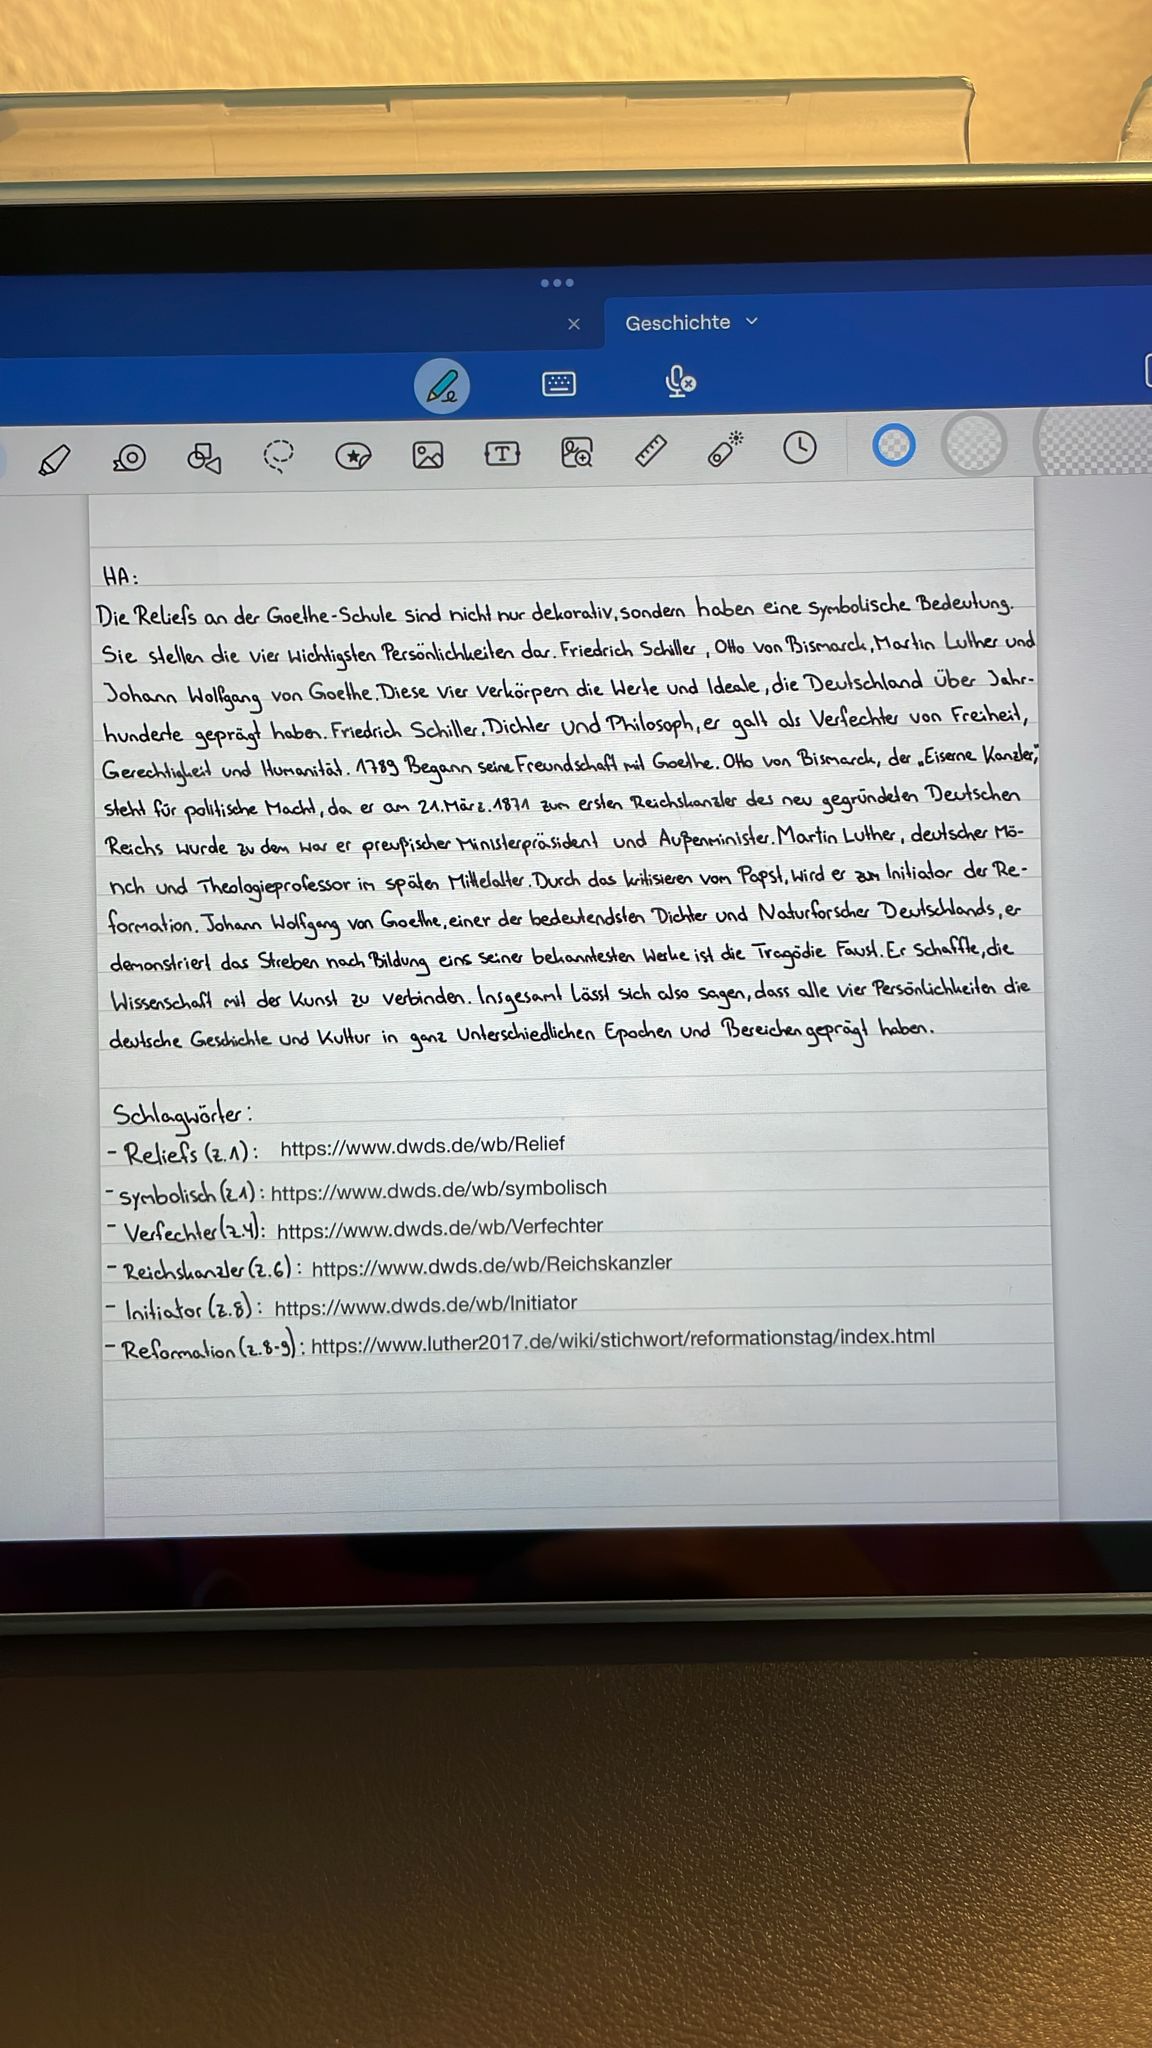 Geschichte
HA:
Die Reliefs an der Goethe-Schule sind nicht nur dekorativ, sondern haben eine symbolische Bedeutung.
Sie stellen die vier wichtigsten Persönlichkeiten dar. Friedrich Schiller, Otto von Bismarck, Martin Luther und
Johann Wolfgang von Goethe. Diese vier verkörpern die Werte und Ideale, die Deutschland über Jahr-
hunderte geprägt haben. Friedrich Schiller, Dichter und Philosoph, er galt als Verfechter von Freiheit,
Gerechtigkeit und Humanität. 1789 Begann seine Freundschaft mit Goethe. Otto von Bismarck, der „Eiserne Kanzler,"
steht für politische Macht, da er am 21. März. 1871 zum ersten Reichskanzler des neu gegründeten Deutschen
Reichs wurde zu dem war er preußischer Ministerpräsident und Außenminister. Martin Luther, deutscher Mö-
nch und Theologieprofessor im späten Mittelalter. Durch das kritisieren vom Papst, wird er zum Initiator der Re-
formation. Johann Wolfgang von Goethe, einer der bedeutendsten Dichter und Naturforscher Deutschlands, er
demonstriert das Streben nach Bildung eins seiner bekanntesten Werke ist die Tragödie Faust. Er schaffte, die
Wissenschaft mit der Kunst zu verbinden. Insgesamt lässt sich also sagen, dass alle vier Persönlichkeiten die
deutsche Geschichte und Kultur in ganz Unterschiedlichen Epochen und Bereichen geprägt haben.
Schlagwörter:
- Reliefs (z.1): https://www.dwds.de/wb/Relief
- symbolisch (z.1): https://www.dwds.de/wb/symbolisch
- Verfechter (z.4): https://www.dwds.de/wb/Verfechter
- Reichskanzler (z.6): https://www.dwds.de/wb/Reichskanzler
- Initiator (z.8): https://www.dwds.de/wb/Initiator
- Reformation (z.8-9): https://www.luther2017.de/wiki/stichwort/reformationstag/index.html